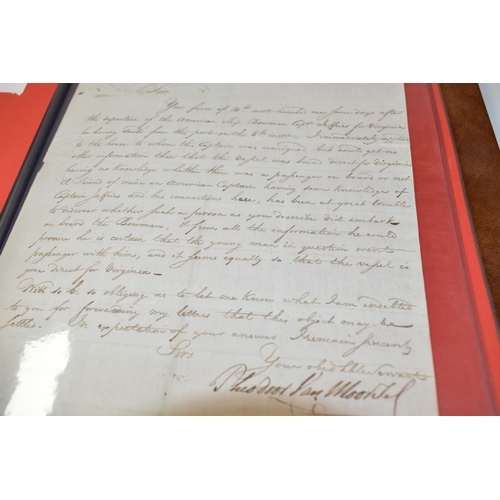 Sir
Your favor of 10th inst. reached me four days after
the departure of the American Ship Bowman Capt. Jeffries for Virginia
he having sailed from this port on the 6th inst. I immediately
to the house to whom the Captain was consigned but could get no
other information than that the vessel was bound direct for Virginia
having no knowledge whether there was a passenger on board or not
A friend of mine an American Captain having some knowledge of
Captain Jeffries and his connections here, has been at great trouble
to discover whether such a person as you describe did embark
on board the Bowman. From all the information he could
procure he is certain that the young man in question went
passenger with him, and it seems equally so that the vessel is
gone direct for Virginia
Will you be so obliging as to let me know what I am indebted
to you for forwarding my letters that this object may be
settled. In expectation of your answer I remain sincerely
Sirs
Your obed. ble Servant
Theodoor Van